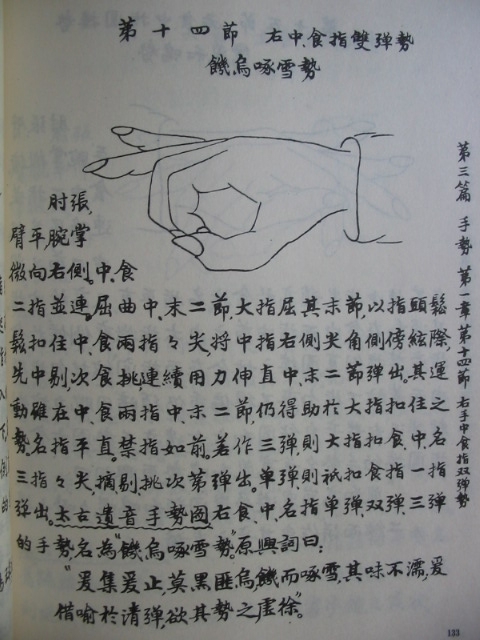 第十四節 右中、食指雙弹勢
饑烏啄雪勢
肘張,
臂平,腕掌
微向右側。中、食
二指並連。屈曲中、末二節,大指屈其末節,以指頭鬆
鬆扣住中、食兩指々尖,將中指右側尖角側傍絃際,
先中剔次食挑,連續用力伸直中、末二節弹出。其運
動雖在中、食兩指中、末二節,仍得助於大指扣住之
勢。名指平直。禁指如前。若作三弹,則大指扣食、中、名
三指々尖,摘剔挑次第弹出。单弹,則祇扣食指一指
弹出。太古遺音手勢圖右食、中、名指单弹双弹三弹
的手勢名為“饑烏啄雪勢”。原興詞曰:
“爰集爰止,莫黑匪烏,饑而啄雪,其味不濡,爰
借喻於清弹,欲其勢之虛徐。”
第三篇 手勢 第一章 第十四節 右手中食指双弹勢
133